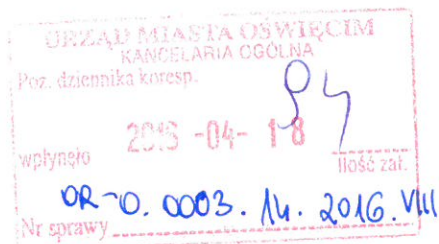 URZĄD MIASTA OŚWIĘCIM
KANCELARIA OGÓLNA
Poz. dziennika koresp.
2016 -04- 18
wpłynęło
Ilość zał.
OR-O. 0003. 14. 2016. VIII
Nr sprawy